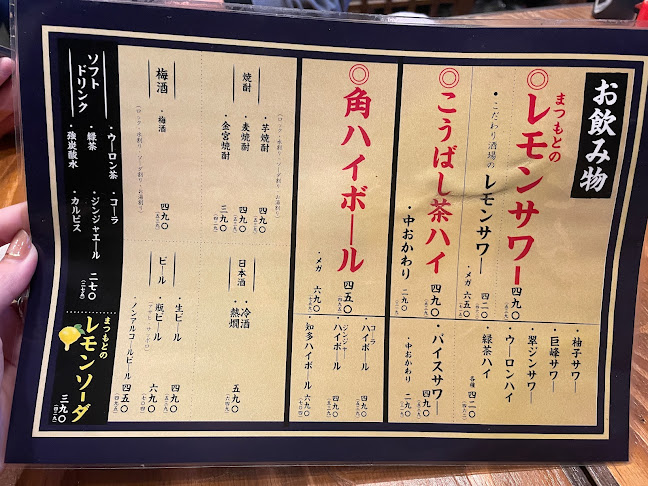 お飲み物
◎まつもとの
レモンサワー 四九〇
・こだわり酒場のレモンサワー 四二〇
・メガ 六五〇
・柚子サワー
・巨峰サワー
・翠ジンサワー
・ウーロンハイ
・緑茶ハイ
各種 四二〇
◎こうばし茶ハイ 四九〇
・中おかわり 二九〇
・バイスサワー 四九〇
・中おかわり 二九〇
◎角ハイボール 四五〇
・メガ 六九〇
・コーラハイボール 四九〇
・ジンジャーハイボール 四九〇
・知多ハイボール 六九〇
焼酎
(ロック・水割り・ソーダ割り・お湯割り)
・芋焼酎 四九〇
・麦焼酎 四九〇
・金宮焼酎 三九〇
日本酒
・冷酒
・熱燗
五九〇
梅酒
・梅酒 四九〇
(ロック・水割り・ソーダ割り・お湯割り)
ビール
・生ビール 四九〇
・瓶ビール 六九〇
・ノンアルコールビール 四五〇
ソフトドリンク
・ウーロン茶
・緑茶
・強炭酸水
・コーラ
・ジンジャエール
・カルピス
二七〇
まつもとの
レモンソーダ
三九〇